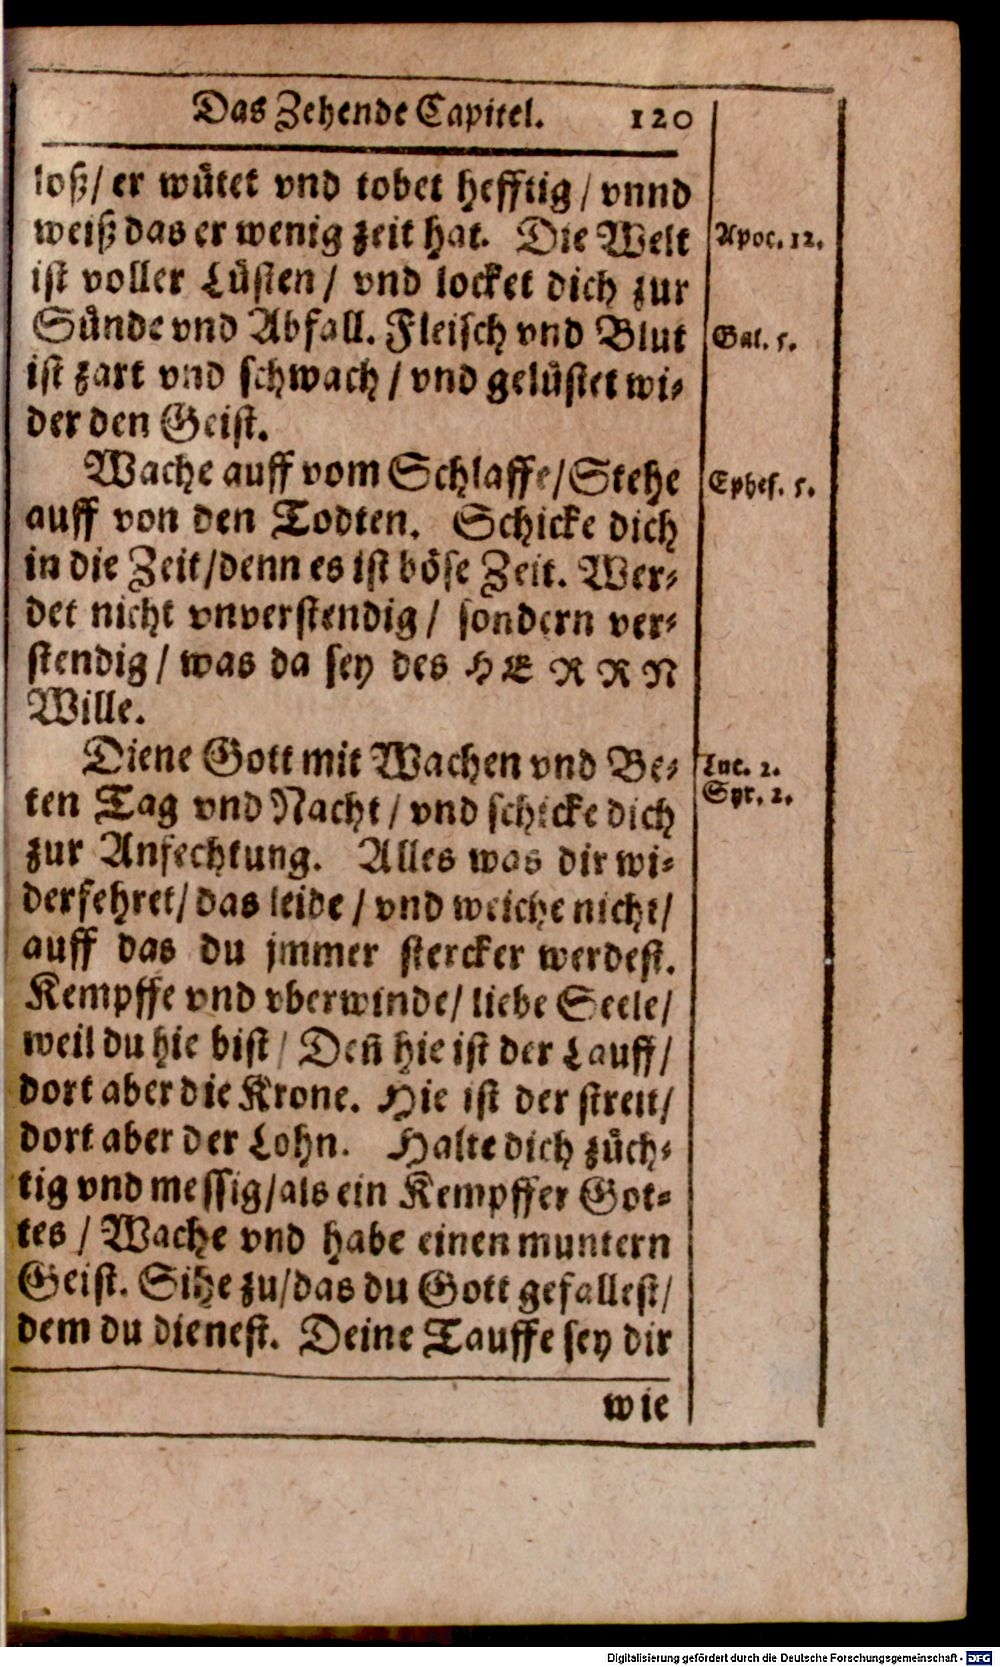 Das Zehende Capitel. 120
loß/ er wuͤtet vnd tobet hefftig/ vnnd
weiß das er wenig zeit hat. Die Welt
Apoc. 12.
ist voller Luͤsten/ vnd locket dich zur
Suͤnde vnd Abfall. Fleisch vnd Blut
Gal. 5.
ist zart vnd schwach/ vnd geluͤstet wi-
der den Geist.
Wache auff vom Schlaffe/ Stehe
Ephes. 5.
auff von den Todten. Schicke dich
in die Zeit/ denn es ist boͤse Zeit. Wer-
det nicht vnverstendig/ sondern ver-
stendig/ was da sey des HERRN
Wille.
Diene Gott mit Wachen vnd Be-
Luc. 2.
Syr. 2.
ten Tag vnd Nacht/ vnd schicke dich
zur Anfechtung. Alles was dir wi-
derfehret/ das leide/ vnd weiche nicht/
auff das du jmmer stercker werdest.
Kempffe vnd vberwinde/ liebe Seele/
weil du hie bist/ Den̄ hie ist der Lauff/
dort aber die Krone. Hie ist der streit/
dort aber der Lohn. Halte dich zuͤch-
tig vnd messig/ als ein Kempffer Got-
tes/ Wache vnd habe einen muntern
Geist. Sihe zu/ das du Gott gefallest/
dem du dienest. Deine Tauffe sey dir
wie
Digitalisierung gefördert durch die Deutsche Forschungsgemeinschaft - DFG